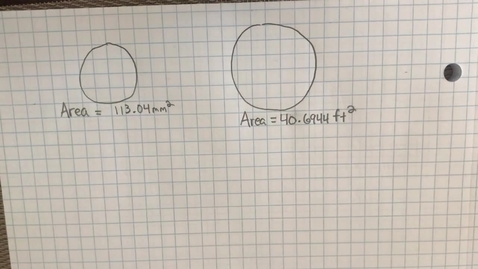 Area = 113.04mm²
Area = 40.6944 ft²